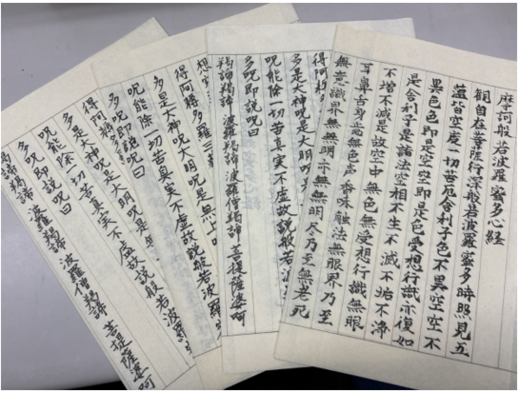 摩訶般若波羅蜜多心経
観自在菩薩行深般若波羅蜜多時照見五
蘊皆空度一切苦厄舎利子色不異空空不
異色色即是空空即是色受想行識亦復如
是舎利子是諸法空相不生不滅不垢不浄
不増不減是故空中無色無受想行識無眼
耳鼻舌身意無色声香味触法無眼界乃至
無意識界無無明亦無無明尽乃至無老死
得阿耨多
多是大神呪是大明呪是
呪能除一切苦真実不虚故説般若波
多呪即説呪曰
羯諦羯諦 波羅羯諦 波羅僧羯諦 菩提薩婆呵
想
得阿耨多羅三
多是大神呪是大明呪是無上呪
呪能除一切苦真実不虚故説般若波羅
多呪即説呪曰
羯諦羯諦 波羅羯諦 波羅僧羯諦
得阿
多是大神呪是大明呪是
呪能除一切苦真実不虚故説般若波羅
多呪即説呪曰
羯諦羯諦 波羅羯諦 波羅僧羯諦 菩提薩婆呵